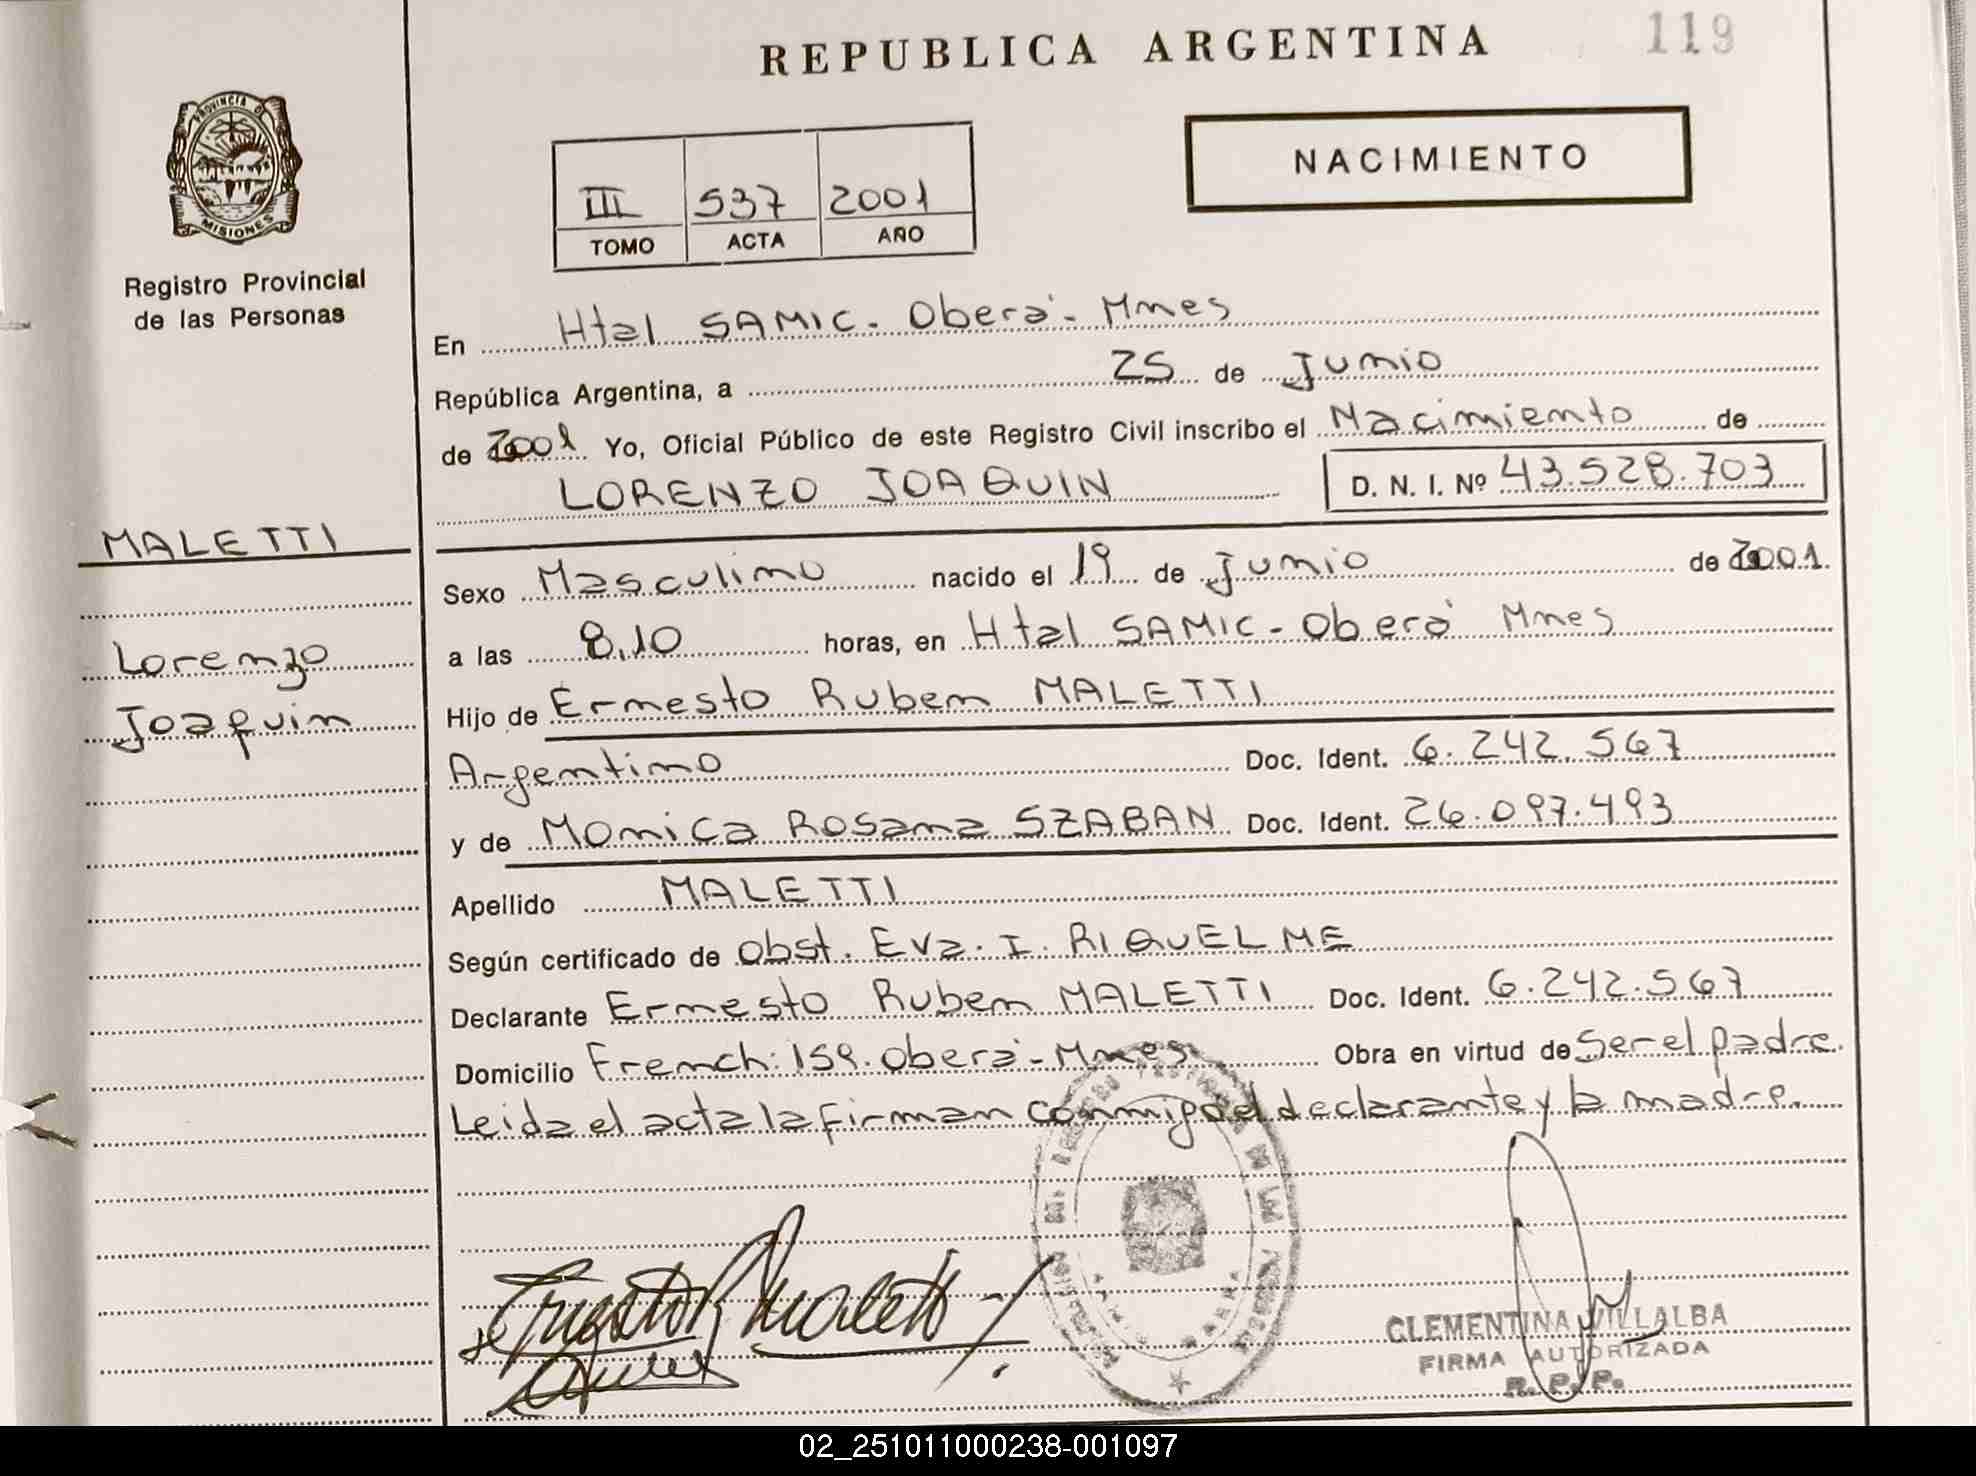 REPUBLICA ARGENTINA
119
PROVINCIA D
MISIONES
Registro Provincial
de las Personas
III 537 2001
TOMO ACTA AÑO
NACIMIENTO
En Htal SAMIC. Oberá - Mnes
República Argentina, a 25 de Junio
de 2001 Yo, Oficial Público de este Registro Civil inscribo el Nacimiento de
LORENZO JOAQUIN D. N. I. Nº 43.528.703
MALETTI
Lorenzo
Joaquin
Sexo Masculino nacido el 19 de Junio de 2001.
a las 8,10 horas, en Htal SAMIC - Oberá Mnes
Hijo de Ernesto Ruben MALETTI
Argentino Doc. Ident. 6.242.567
y de Monica Rosana SZABAN Doc. Ident. 26.097.493
Apellido MALETTI
Según certificado de Obst. Eva. I. RIQUELME
Declarante Ernesto Ruben MALETTI Doc. Ident. 6.242.567
Domicilio French: 159. Oberá - Mnes. Obra en virtud de Ser el padre.
Leida el acta la firman conmigo el declarante y la madre.
CLEMENTINA VILLALBA
FIRMA AUTORIZADA
R. P. P.
02_251011000238-001097